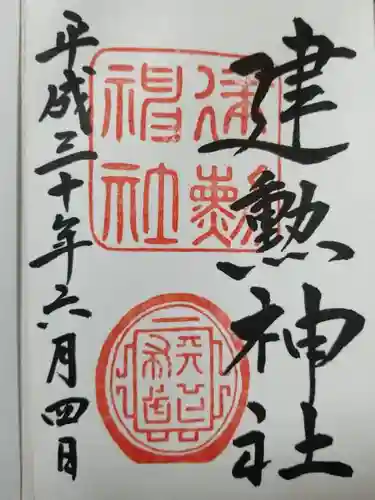 建勲神社
平成三十年六月四日
建勲神社